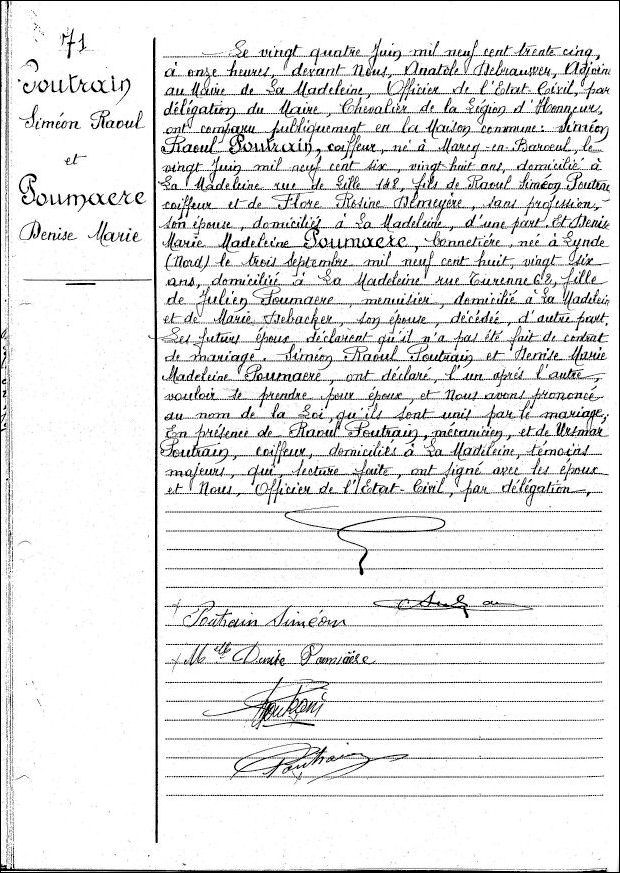 71
Poutrain
Siméon Raoul
et
Poumaere
Denise Marie
Le vingt quatre Juin mil neuf cent trente cinq,
à onze heures, devant Nous, Anatole Debrauwer, Adjoint
au Maire de La Madeleine, Officier de l'Etat-Civil, par
délégation du Maire, Chevalier de la Légion d'Honneur,
ont comparu publiquement en la Maison commune: Siméon
Raoul Poutrain, coiffeur, né à Marcq-en-Baroeul, le
vingt Juin mil neuf cent six, vingt huit ans, domicilié à
La Madeleine rue de Lille 148, fils de Raoul Siméon Poutrain
coiffeur et de Flore Rosine Demeyère, sans profession,
son épouse, domiciliés à La Madeleine, d'une part. Et Denise
Marie Madeleine Poumaere, bonnetière, née à Lynde
(Nord) le trois septembre mil neuf cent huit, vingt six
ans, domiciliée à La Madeleine rue Turenne 62, fille
de Julien Poumaere, menuisier, domicilié à La Madeleine
et de Marie Debacker, son épouse, décédée, d'autre part.
Les futurs époux déclarent qu'il n'a pas été fait de contrat
de mariage. Siméon Raoul Poutrain et Denise Marie
Madeleine Poumaere, ont déclaré, l'un après l'autre,
vouloir se prendre pour époux, et Nous avons prononcé
au nom de la Loi, qu'ils sont unis par le mariage,
En présence de Raoul Poutrain, mécanicien, et de Ursmar
Poutrain, coiffeur, domiciliés à La Madeleine, témoins
majeurs, qui, lecture faite, ont signé avec les époux
et Nous, Officier de l'Etat-Civil, par délégation,
Poutrain Siméon
Melle Denise Poumaëre
Poutrain